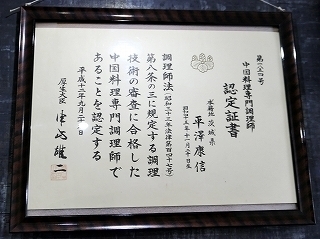 中国料理専門調理師
認定証書
本籍地 茨城県
平澤康信
調理師法(昭和三十三年法律第百四十七号)
第八条の三に規定する調理
技術の審査に合格した
中国料理専門調理師で
あることを認定する
平成十二年九月二十一日
厚生大臣 津島雄二